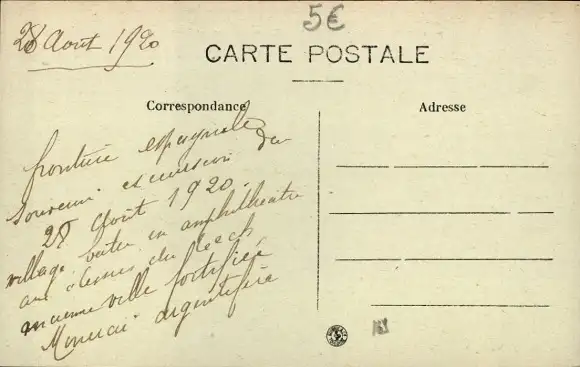 5€
28 Août 1920
CARTE POSTALE
Correspondance
Adresse
frontière espagnole
Souvenir excursion du
28 Août 1920.
village bâtie en amphithéatre
au dessus du
ancienne ville fortifiée
argentifère